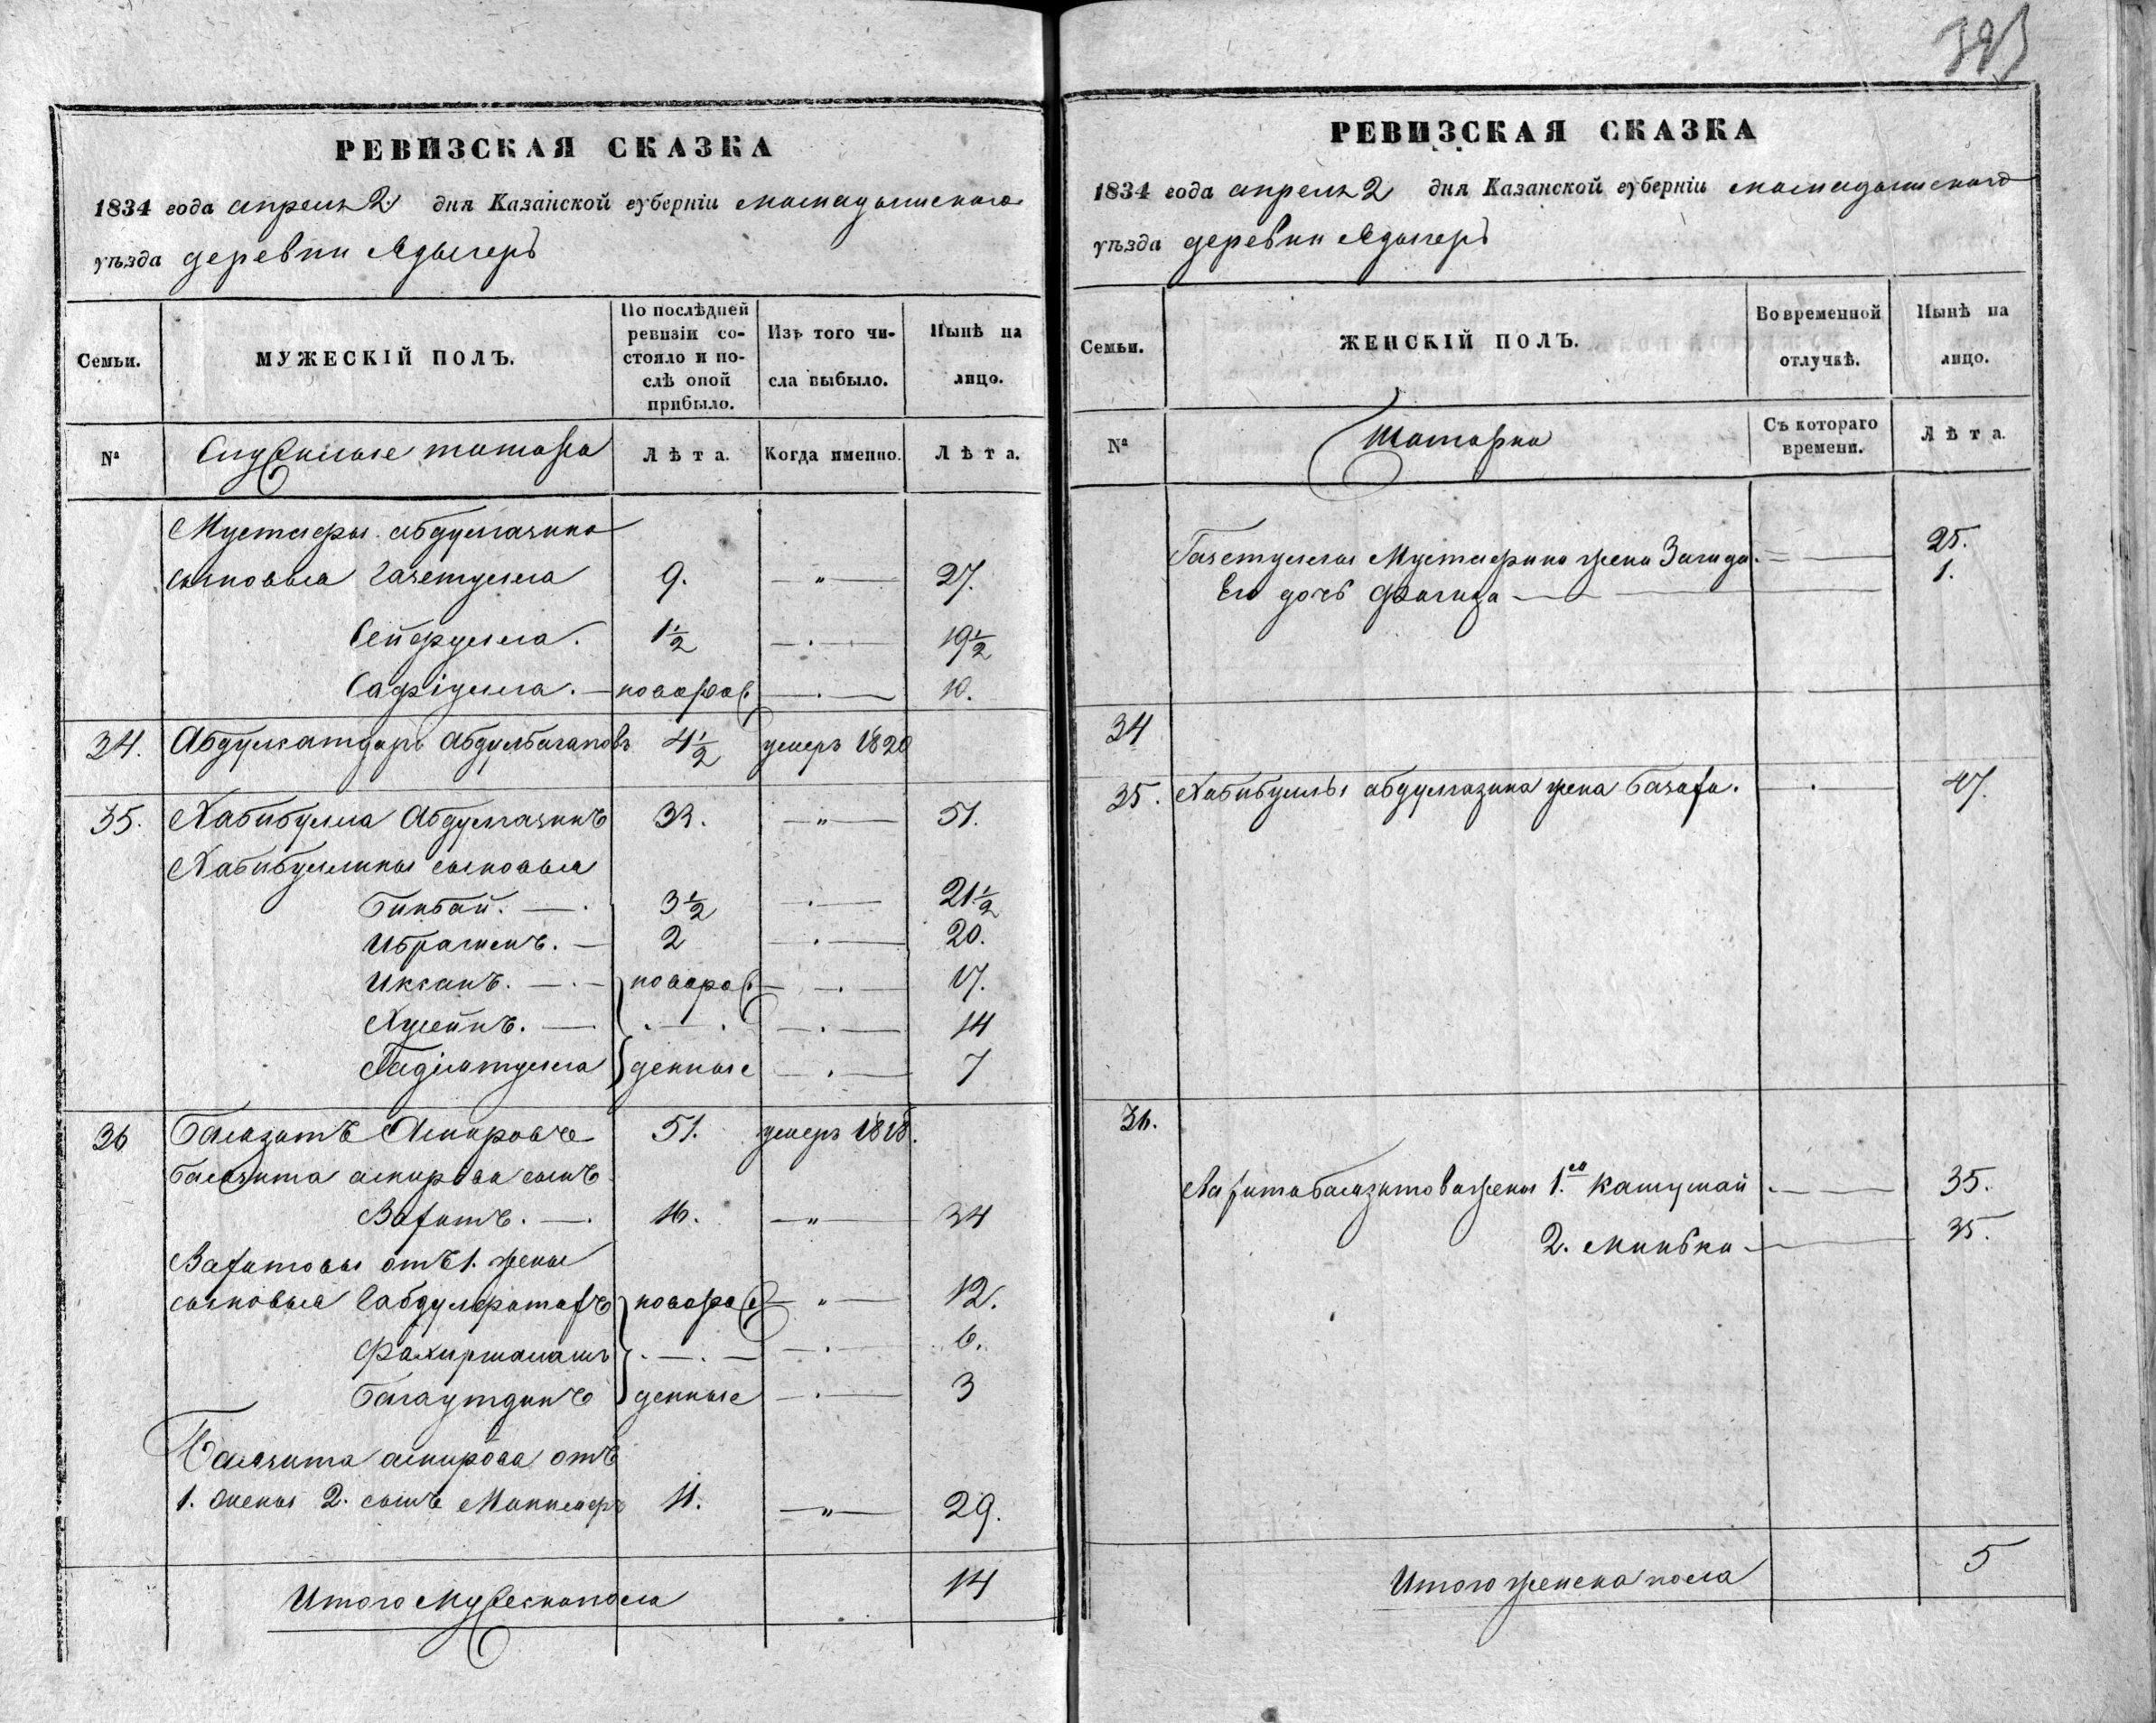 РЕВИЗСКАЯ СКАЗКА
1834 года апреля 2 дня Казанской губерніи мамадышскаго
уѣзда деревни Ядыгеръ
Семьи.
МУЖЕСКІЙ ПОЛЪ.
По послѣдней ревизіи состояло и послѣ оной прибыло.
Изъ того числа выбыло.
Нынѣ на лицо.
№
Служилые татара
Лѣта.
Когда именно.
Лѣта.
Мустафы абдулгазина
сыновья Газетулла 9. — „ — 27.
Сейфулла. 1½ — . — 19½
Сафіулла. — новорож — . — 10.
34. Абдулсатдаръ Абдулбагановъ 4½ умеръ 1820
35. Хабибулла Абдулгазинъ 33. — „ — 51.
Хабибуллины сыновья
Бикбай. — . 3½ — . — 21½
Ибрагимъ. — 2 — . — 20.
Иксанъ. — . — новорож — . — 17.
Хусейнъ. — . — . — . — 14
Гадіатулла денные — . — 7
36 Баязитъ Амировъ 51. умеръ 1818.
Баязита амирова сынъ
Вагитъ. — . 16. — „ — 34
Вагитовы отъ 1. жены
сыновья Габдулфатахъ новорож — „ — 12.
Фахиршаманъ . — . — — . — 6.
Багаутдинъ денные — . — 3
Баязита амирова отъ
1. жены 2. сынъ Минлиаръ 11. — „ — 29.
Итого мужеска пола 14
РЕВИЗСКАЯ СКАЗКА
1834 года апреля 2 дня Казанской губерніи мамадышскаго
уѣзда деревни Ядыгеръ
Семьи.
ЖЕНСКІЙ ПОЛЪ.
Во временной отлучкѣ.
Нынѣ на лицо.
№
Татарки
Съ котораго времени.
Лѣта.
Газетуллы Мустафина жена Загида. — 25.
Его дочь Фагиза — 1.
34
35. Хабибуллы абдулгазина жена — . — 47.
36.
Вагита баязитова жены 1.ая . — 35.
2. — 35.
Итого женска пола 5